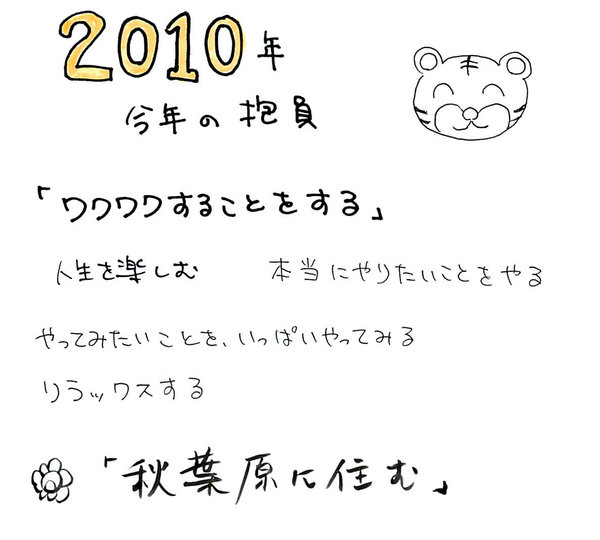 2010年
今年の抱員
「ワクワクすることをする」
人生を楽しむ 本当にやりたいことをやる
やってみたいことを、いっぱいやってみる
リラックスする
「秋葉原に住む」